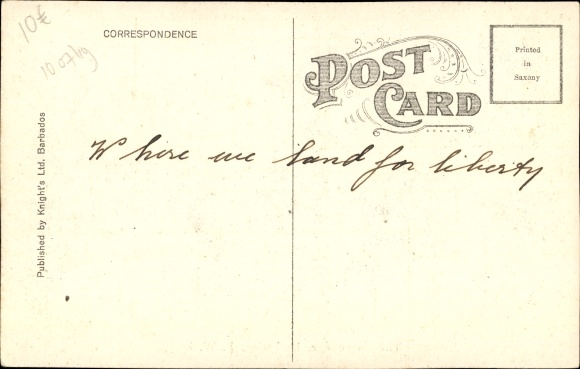 10€
CORRESPONDENCE
POST
CARD
Printed
in
Saxony
Where we land for liberty
Published by Knight's Ltd, Barbados